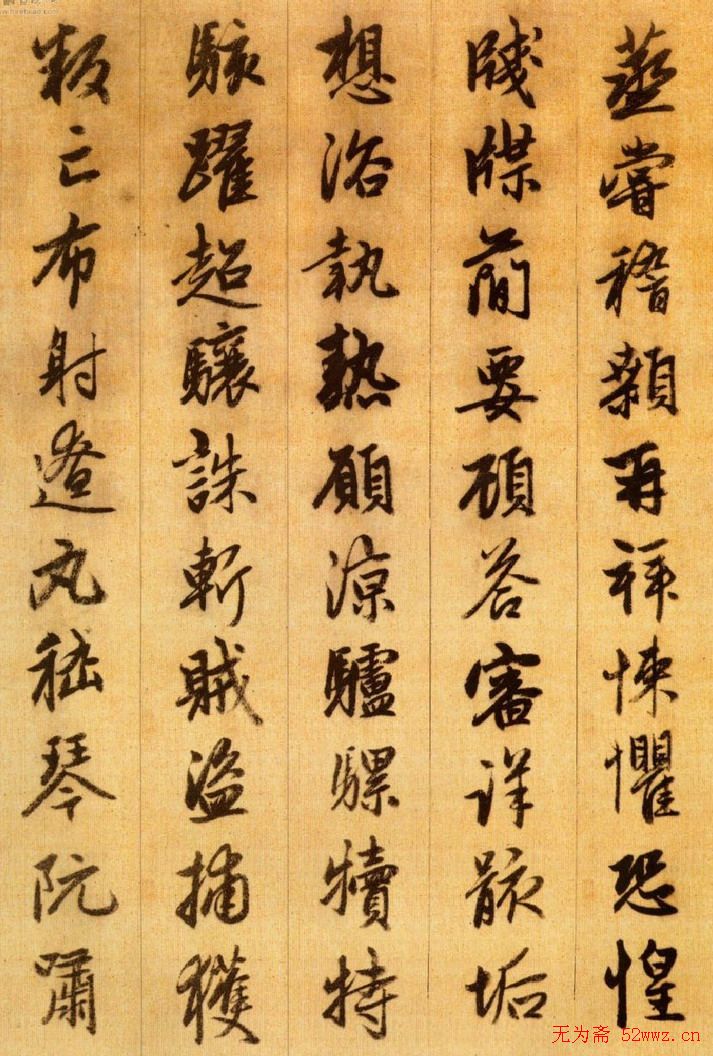 蒸嘗稽顙再拜悚懼恐惶
牋牒簡要顧答審詳骸垢
想浴執熱願涼驢騾犢特
駭躍超驤誅斬賊盜捕獲
叛亡布射遼丸嵇琴阮嘯
无为斋 52wwz.cn